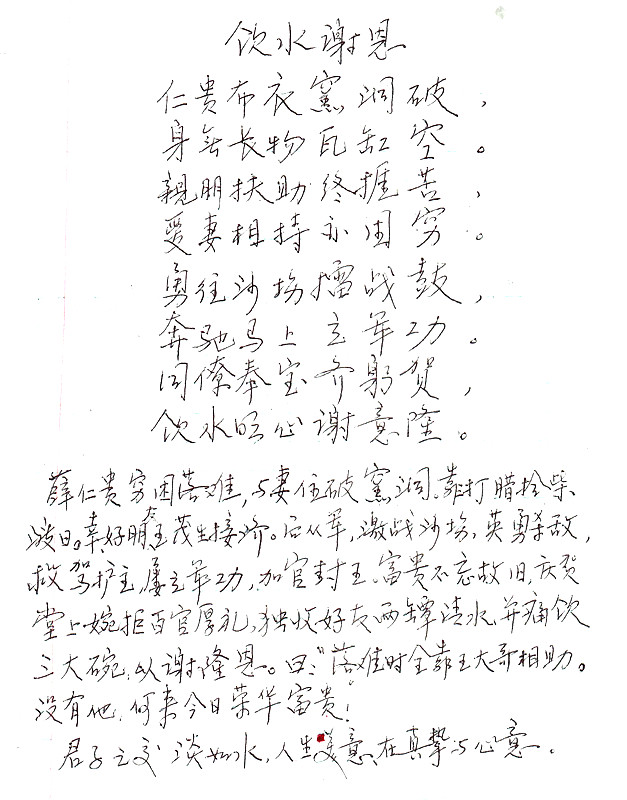 饮水谢恩
仁贵布衣窑洞破，
身无长物瓦缸空。
親朋扶助终捱苦，
爱妻相持亦困穷。
勇往沙场擂战鼓，
奔驰马上立军功。
同僚奉宝齐躬贺，
饮水明心谢意隆。
薛仁贵穷困落难，与妻住破窑洞、靠打腊拾柴
渡日。幸好朋友王茂生接济。后从军，激战沙场，英勇杀敌，
救驾护主，屡立军功，加官封王、富贵不忘故旧，庆贺
堂上婉拒百官厚礼，独收好友两罈清水、并痛饮
三大碗，以谢隆恩。曰：“落难时全靠王大哥相助。
没有他，何来今日荣华富贵！”
君子之交淡如水，人生美意，在真挚与心意。